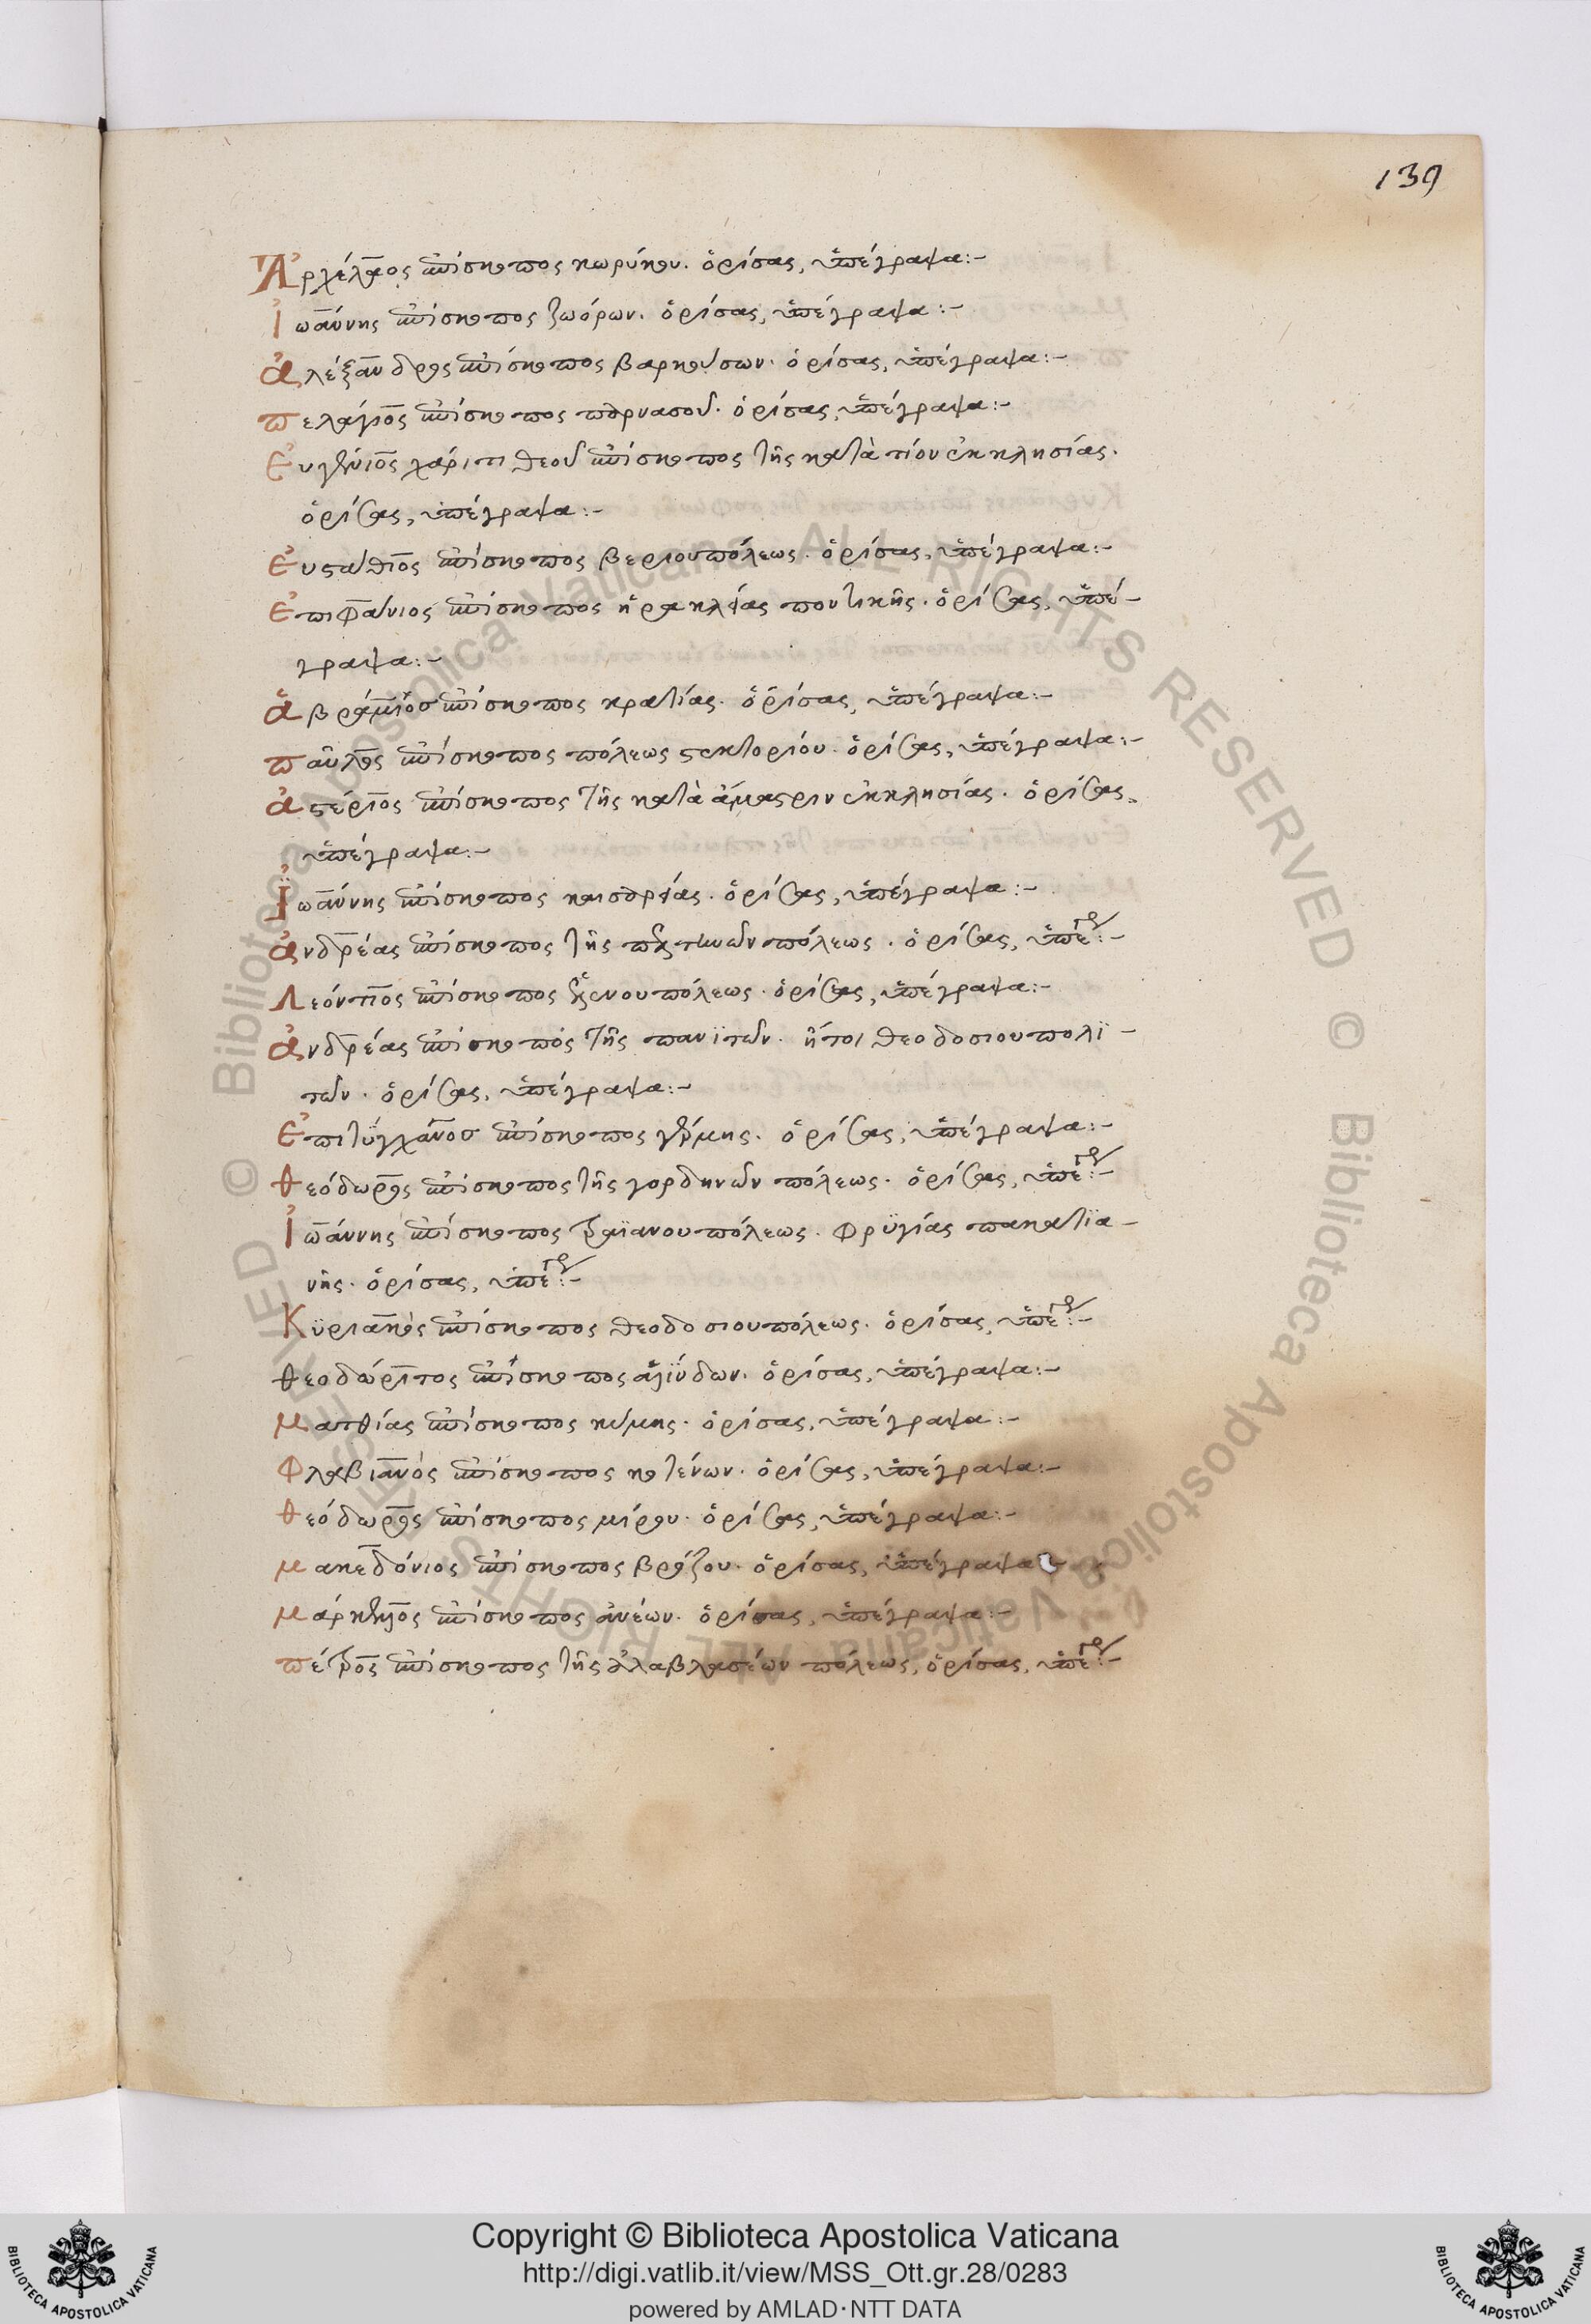 139
Ἀρχέλαος ἐπίσκοπος κωρύκου. ὁρίσας, ὑπέγραψα:-
Ἰωάννης ἐπίσκοπος ζωόρων. ὁρίσας, ὑπέγραψα:-
ἀλέξανδρος ἐπίσκοπος βαρκούσων. ὁρίσας, ὑπέγραψα:-
πελάγιος ἐπίσκοπος παρνασοῦ. ὁρίσας, ὑπέγραψα:-
Εὐγένιος χάριτι θεοῦ ἐπίσκοπος τῆς κατὰ τίον ἐκκλησίας.
ὁρίσας, ὑπέγραψα:-
Εὐσταθιος ἐπίσκοπος βεριουπόλεως. ὁρίσας, ὑπέγραψα:-
Ἐπιφάνιος ἐπίσκοπος ἡρακλείας ποντικῆς. ὁρίσας, ὑπέ-
γραψα:-
ἀβράμιος ἐπίσκοπος κρατίας. ὁρίσας, ὑπέγραψα:-
παῦλος ἐπίσκοπος πόλεως στεκτορίου. ὁρίσας, ὑπέγραψα:-
ἀστέριος ἐπίσκοπος τῆς κατὰ ἄμαστριν ἐκκλησίας. ὁρίσας,
ὑπέγραψα:-
Ἰωάννης ἐπίσκοπος καισαρείας. ὁρίσας, ὑπέγραψα:-
ἀνδρέας ἐπίσκοπος τῆς πόλεως. ὁρίσας, ὑπέγρ:-
Λεόντιος ἐπίσκοπος ἑλενουπόλεως. ὁρίσας, ὑπέγραψα:-
ἀνδρέας ἐπίσκοπος τῆς πανϊτῶν. ἤτοι θεοδοσιουπολϊ-
τῶν. ὁρίσας, ὑπέγραψα:-
Ἐπιτϋγχάνοσ ἐπίσκοπος γέρμης. ὁρίσας, ὑπέγραψα:-
θεόδωρος ἐπίσκοπος τῆς γορδηνῶν πόλεως. ὁρίσας, ὑπέγρ:-
Ἰωάννης ἐπίσκοπος τραϊανουπόλεως. φρϋγίας πακατϊα-
νῆς. ὁρίσας, ὑπέγρ:-
Κϋριακὸς ἐπίσκοπος θεοδοσιουπόλεως. ὁρίσας, ὑπέγρ:-
θεοδώριτος ἐπίσκοπος ἀλίνδων. ὁρίσας, ὑπέγραψα:-
ματθίας ἐπίσκοπος κύμης. ὁρίσας, ὑπέγραψα:-
Φλαβιανὸς ἐπίσκοπος κοτένων. ὁρίσας, ὑπέγραψα:-
θεόδωρος ἐπίσκοπος μίρου. ὁρίσας, ὑπέγραψα:-
μακεδόνιος ἐπίσκοπος βρούζου. ὁρίσας, ὑπέγραψα
μάρκελλος ἐπίσκοπος ἀνέων. ὁρίσας, ὑπέγραψα:-
πέτρος ἐπίσκοπος τῆς κολαβλασέων πόλεως, ὁρίσας, ὑπέγρ:-
Copyright © Biblioteca Apostolica Vaticana
http://digi.vatlib.it/view/MSS_Ott.gr.28/0283
powered by AMLAD·NTT DATA
BIBLIOTECA APOSTOLICA VATICANA
BIBLIOTECA APOSTOLICA VATICANA
© Biblioteca Apostolica Vaticana ALL RIGHTS RESERVED © Biblioteca Apostolica Vaticana ALL RIGHTS RESERVED